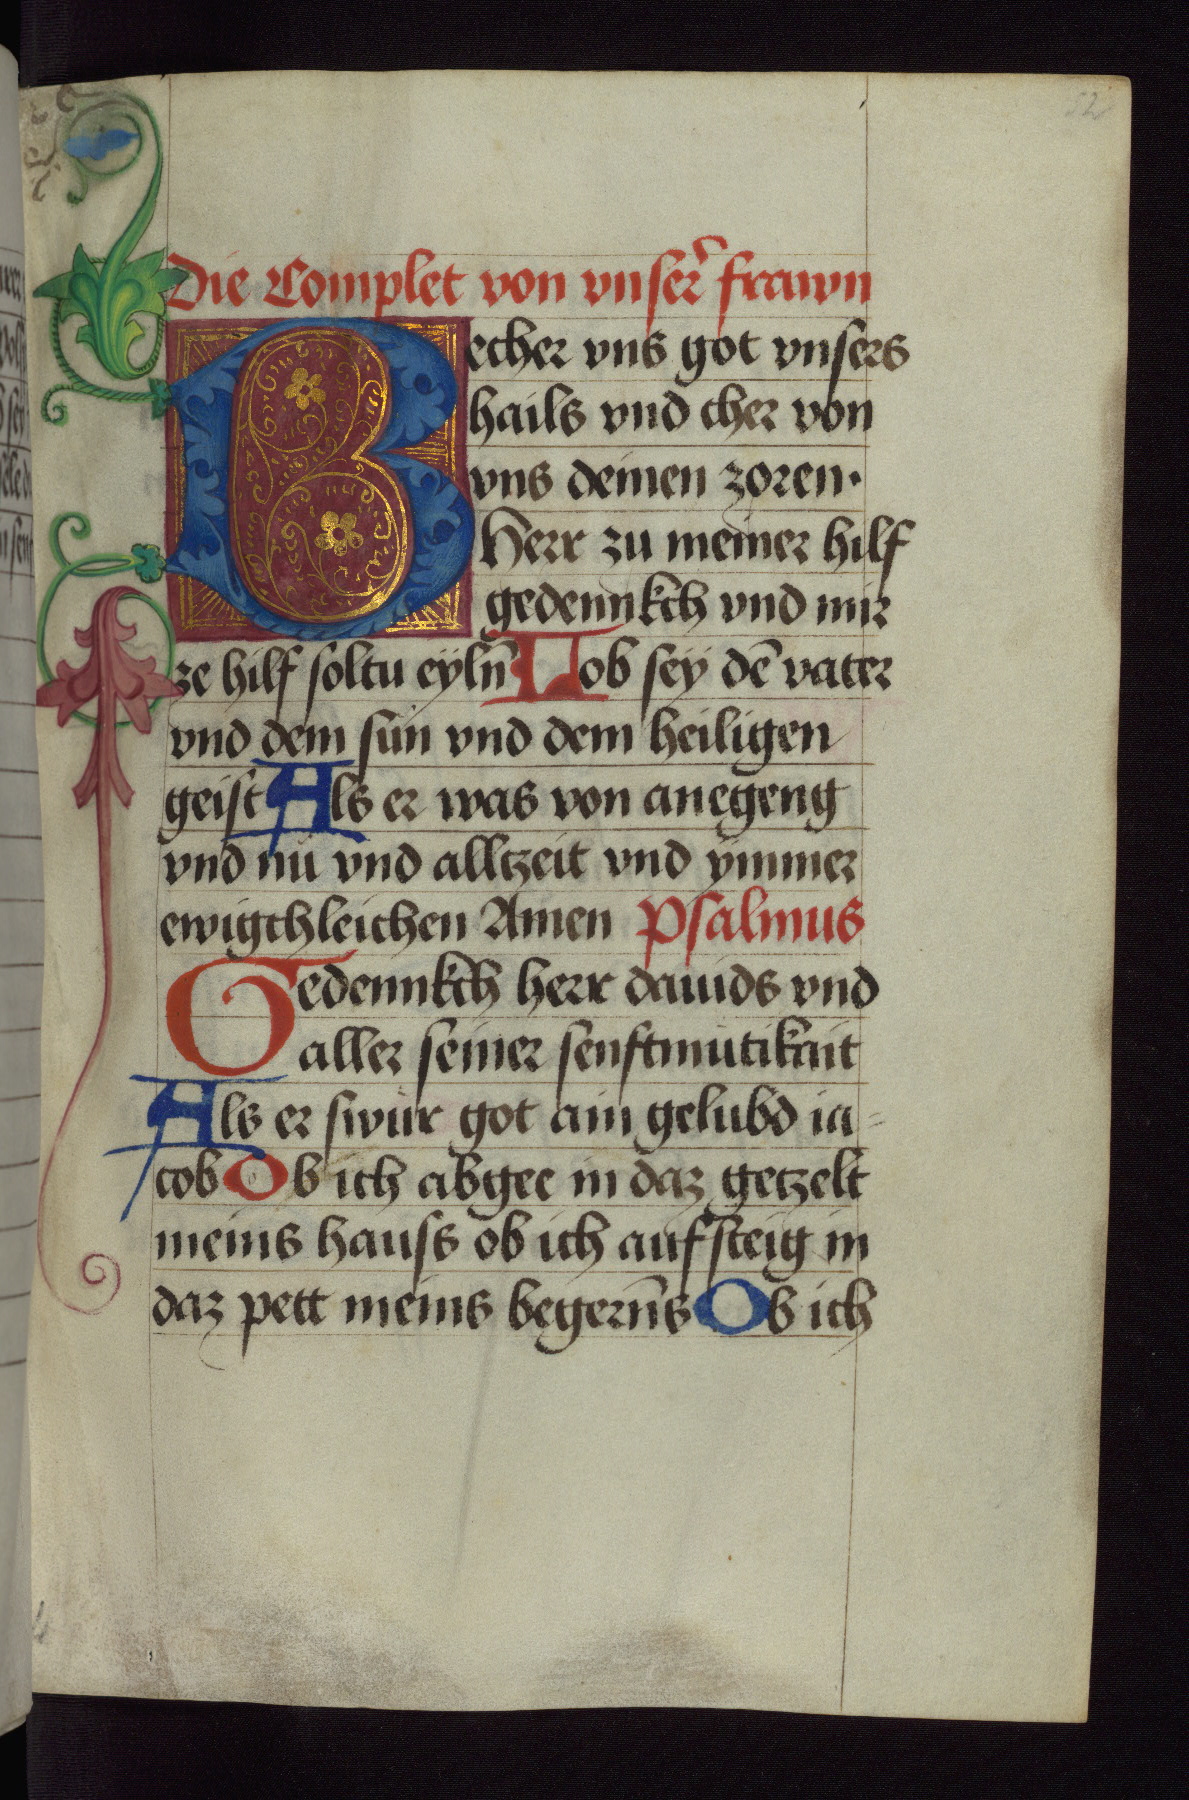 52
Die Complet von vnser̾ frawn
Becher vns got vnsers
hails vnd cher von
vns deinen zoren·
Herr zu meiner hilf
gedennkch vnd mir
ze hilf soltu eyln̄ Lob sey dē vater
vnd dem sun vnd dem heiligen
geist Als er was von anegeng
vnd nu vnd alltzeit vnd ymmer
ewigchleichen Amen Psalmus
Gedennkch herr dauids vnd
aller seiner senftmutikait
Als er swur got ain gelubd ia-
cob Ob ich abgee in daz getzelt
meins hauss ob ich aufsteig in
daz pett meins begern̄s Ob ich